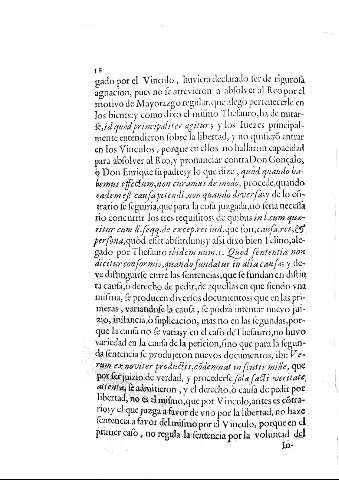 18
gado por el Vinculo, huviera declarado ser de rigurosa
agnacion, pues no se atrevieron a absolver al Reo por el
motivo de Mayorazgo regular, que alegò pertenecerle en
los bienes: y como dixo el mismo Thesauro, ha de mirar-
se, id quòd principaliter agitur, y los Iuezes principal-
mente entendieron sobre la libertad, y no quisierõ entrar
en los Vinculos, porque en ellos no hallaron capacidad
para absolver al Reo, y pronunciar contra Don Gonçalo,
ò Don Enrique su padre; y lo que dize, quòd quando ha-
bemus effectum, non curamus de modo, procede, quando
eadem est causa petendi, non quando diversa; y de lo cõ-
trario se seguiria, que para la cosa juzgada, no seria necessa
rio concurrir los tres requisitos de quibus in l. cum quæ-
ritur cum ll. seqq. de except. rei iud. que son, causa, res, &
persona, quòd esset absurdum; y assi dixo bien el mo, ale-
gado por Thesauro ibidem num. 1. Quod sententia non
dicitur conformis, quando fundatur in alia causa; y de-
ve distinguirse entre las sentencias, que se fundan en distin
ta causa, ò derecho de pedir, de aquellas en que siendo vna
misma, se producen diversos documentos: que en las pri-
meras, variandose la causa, se podrà intentar nuevo jui-
zio, instancia, ò suplicacion, mas no en las segundas, por-
que la causa no se varia; y en el caso de Thesauro, no huvo
variedad en la causa de la peticion, sino que para la segun-
da sentencia se produjeron nuevos documentos, ibi: Ve-
rum ex noviter productis, cõdemnat in scutis mille, que
por ser juizio de verdad, y procederse sola facti veritate
attenta, se admitieron, y el derecho, ò causa de pedir por
libertad, no es el mismo, que por Vinculo, antes es cõtra-
rio; y el que juzga a favor de vno por la libertad, no haze
sentencia a favor del mismo por el Vinculo, porque en el
primer caso, no regula la sentencia por la voluntad del
In-